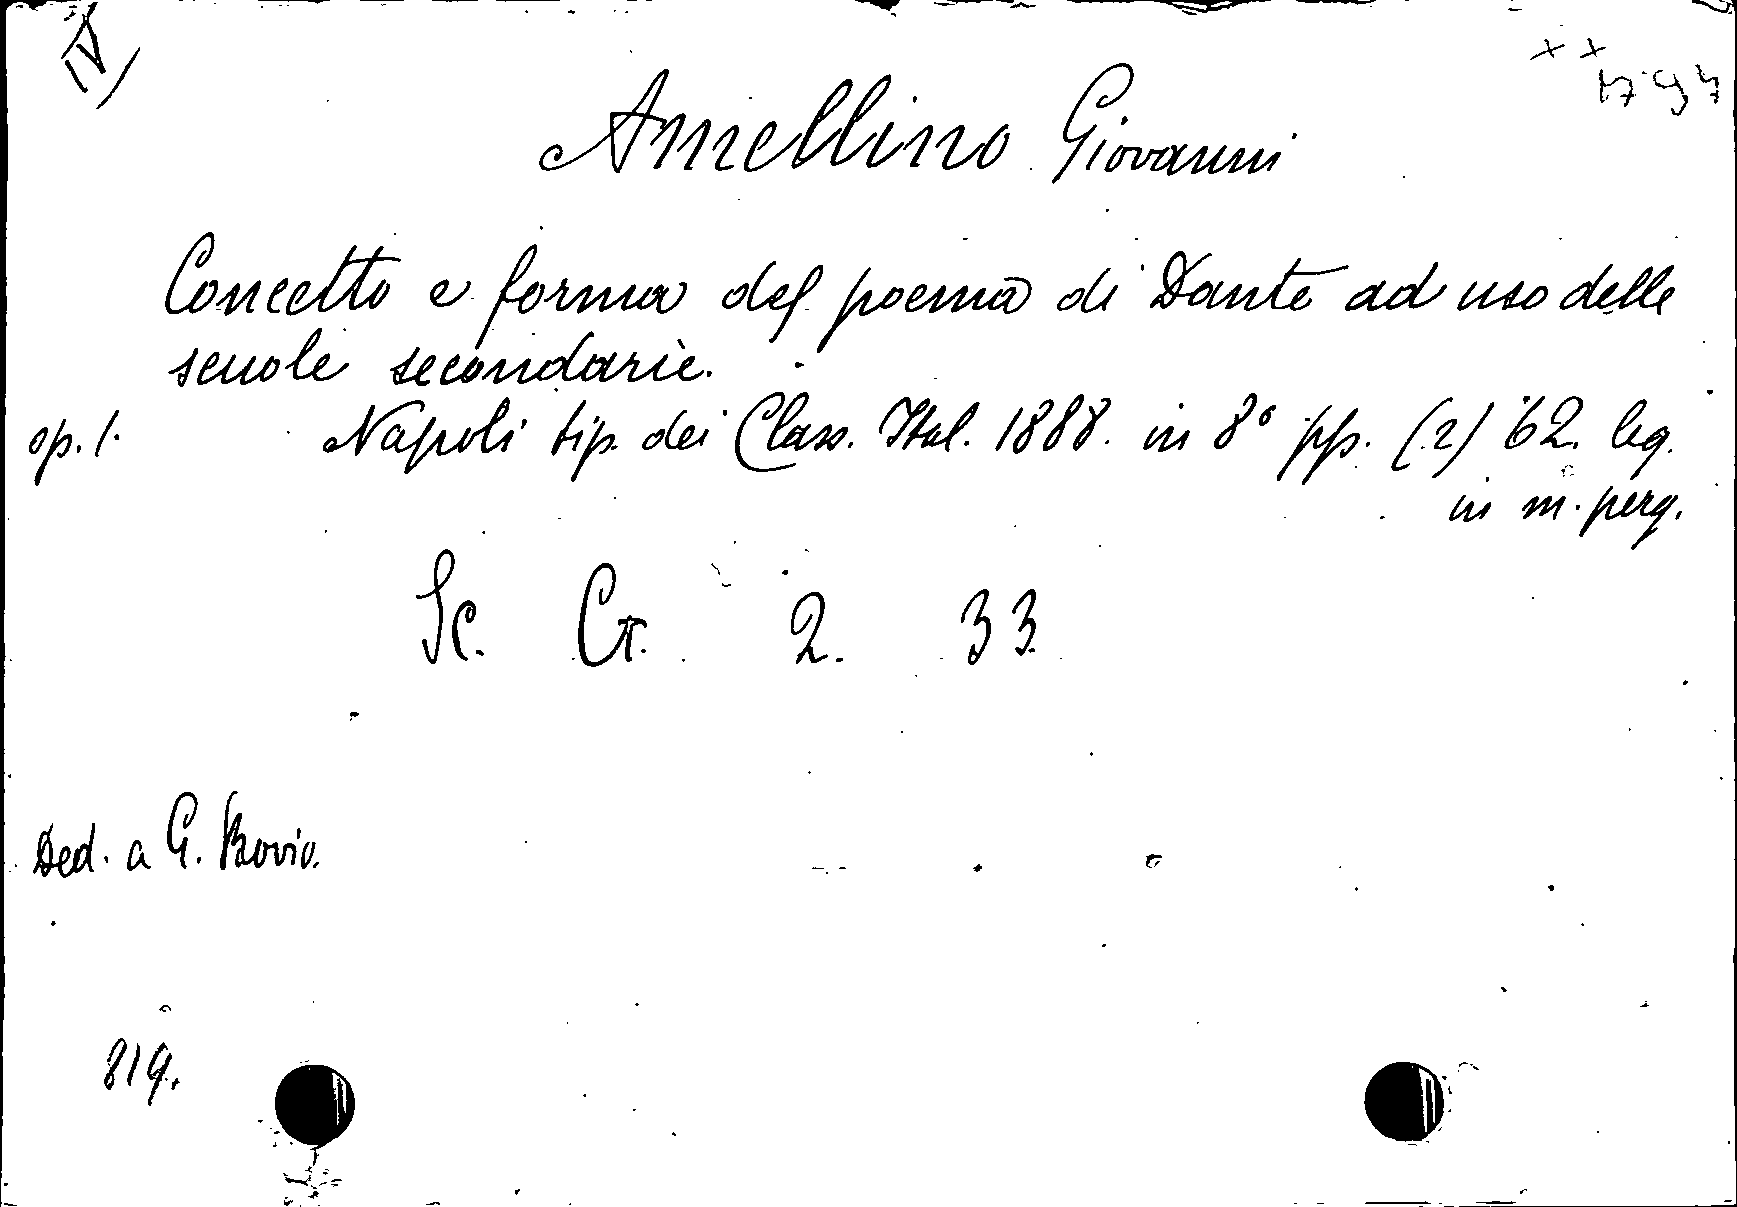 IV)
Amellino Giovanni
Concetto e forma del poema di Dante ad uso delle
scuole secondarie.
op. 1. Napoli tip. dei Class. Ital. 1888. in 8° pp. (2) 62. leg.
in m. perg.
Sc. Cr. 2. 33.
Ded. a G. Bovio.
819.